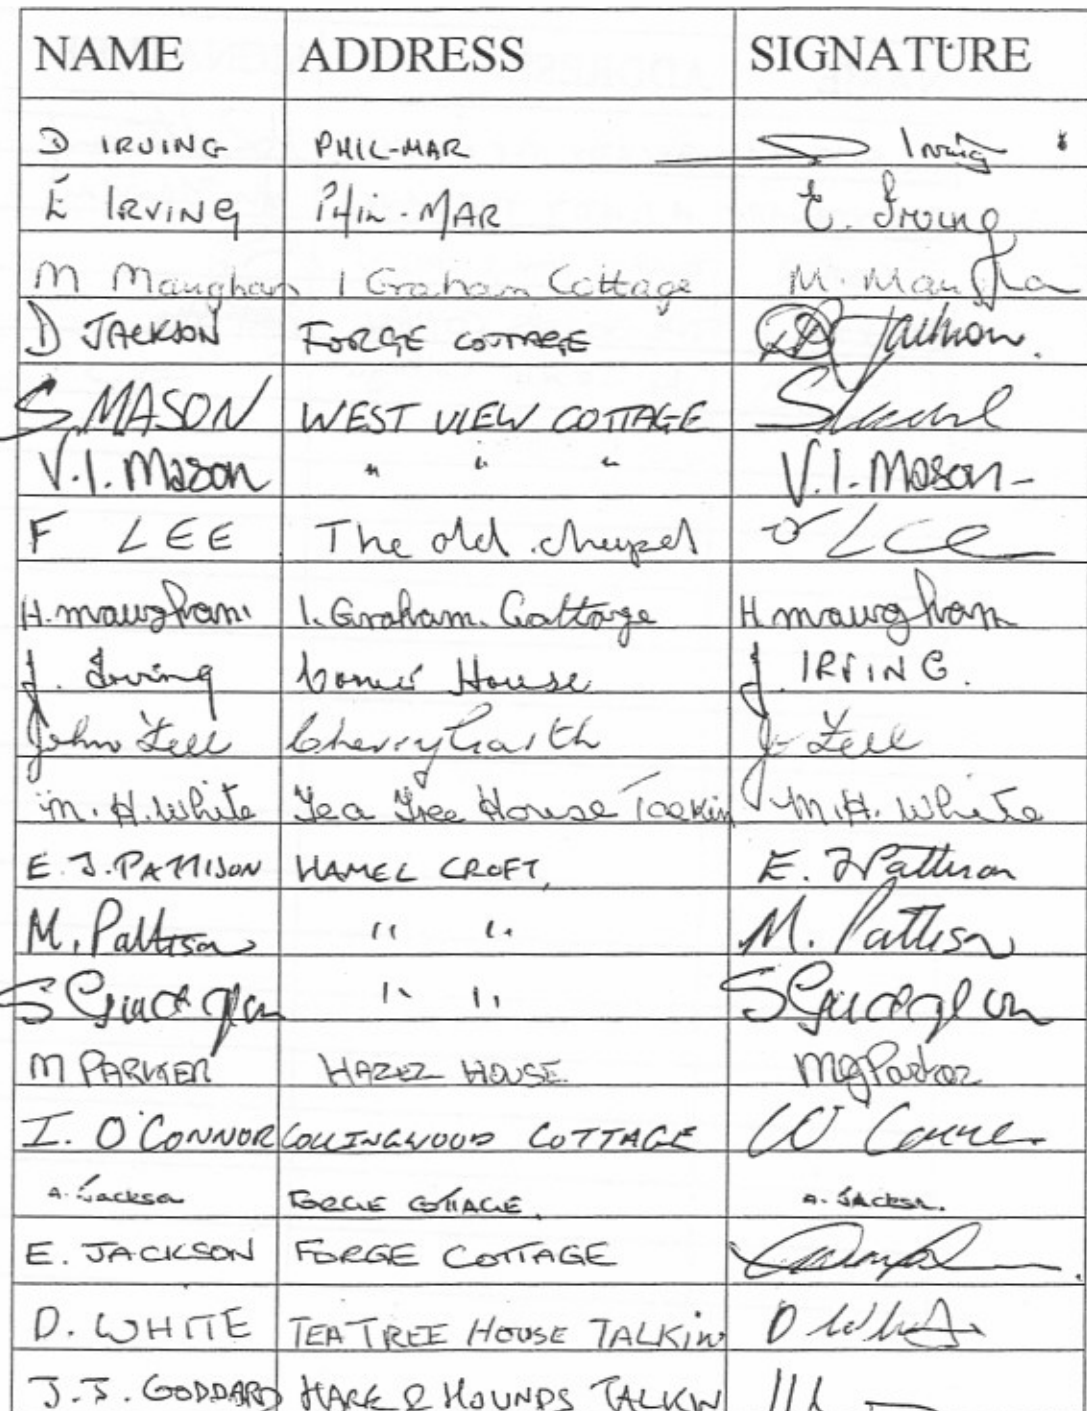 NAME ADDRESS SIGNATURE
D IRVING PHIL-MAR Irving
E IRVING PHIL-MAR E. Irving
M Maughan 1 Graham Cottage M. Maugha
D JACKSON FORGE COTTAGE Jackson.
S. MASON WEST VIEW COTTAGE
V.I. Mason " " " V.I. Mason-
F LEE The old chapel F LEE
H. maughan 1. Graham. Cottage H maughan
J. Irving House J. IRVING.
John Fell Cherry Garth J Fell
M. H. White Tea Tree House Talkin M. H. White
E. J. PATTISON HAMEL CROFT, E. J Pattison
M. Pattison " " M. Pattison
S " " S
M PARKER HAZEL HOUSE. MJ Parker
I. O'CONNOR COLLINGWOOD COTTAGE
A. Jackson FORGE COTTAGE. A. JACKSN.
E. JACKSON FORGE COTTAGE
D. WHITE TEA TREE HOUSE TALKIN D White
J. J. GODDARD HARE & HOUNDS TALKIN